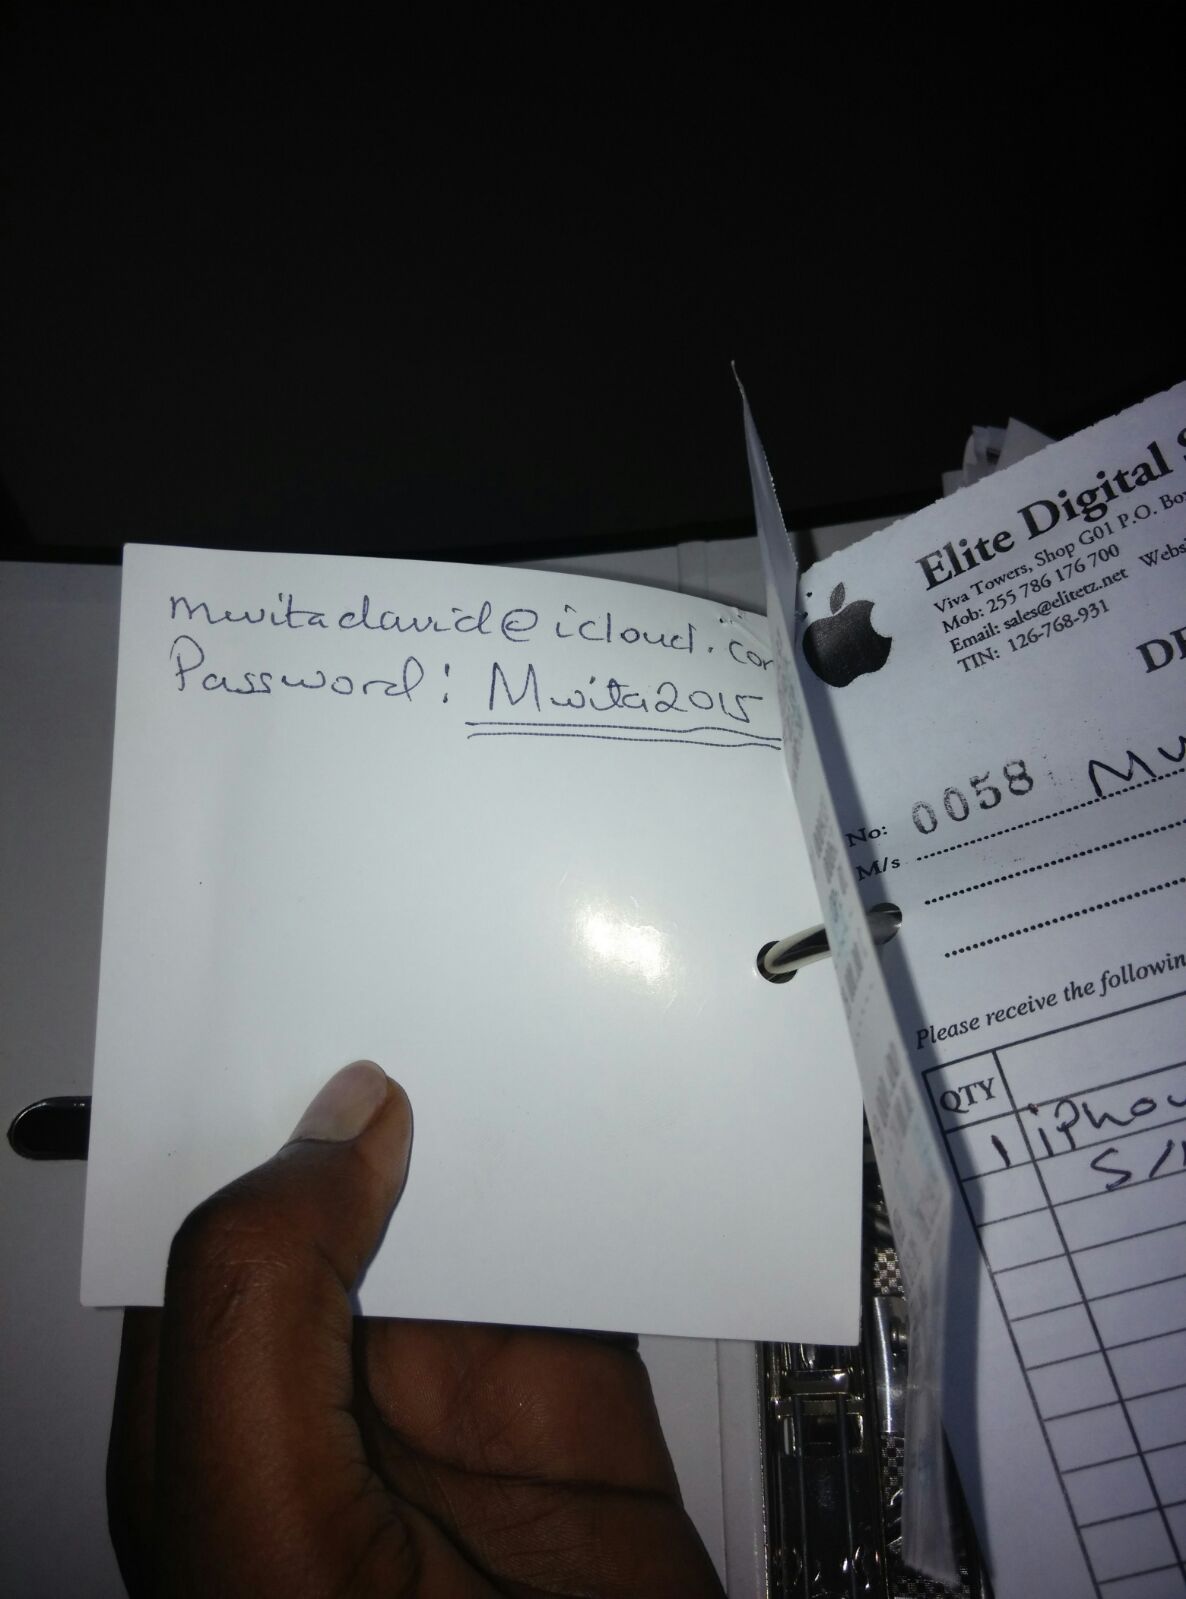 mwitadavid@icloud.com
Password: Mwita2015
Elite Digital
Viva Towers, Shop G01 P.O. Box
Mob: 255 786 176 700
Email: sales@elitetz.net
TIN: 126-768-931
No: 0058
M/s
Please receive the following
QTY
1 iPhone
S/N